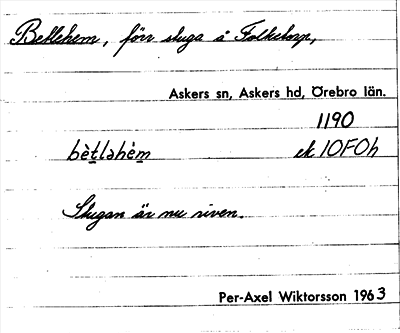 Betlehem, förr stuga å Folketorp,
Askers sn, Askers hd, Örebro län.
1190
bè̱tləhè̱m ek 10F0h
Stugan är nu riven.
Per-Axel Wiktorsson 1963